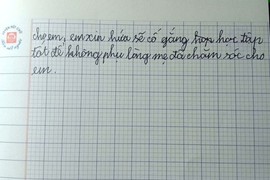 cho em, em xin hứa sẽ cố gắng học học tập
tốt để không phụ lòng mẹ đã chăm sóc cho
em.